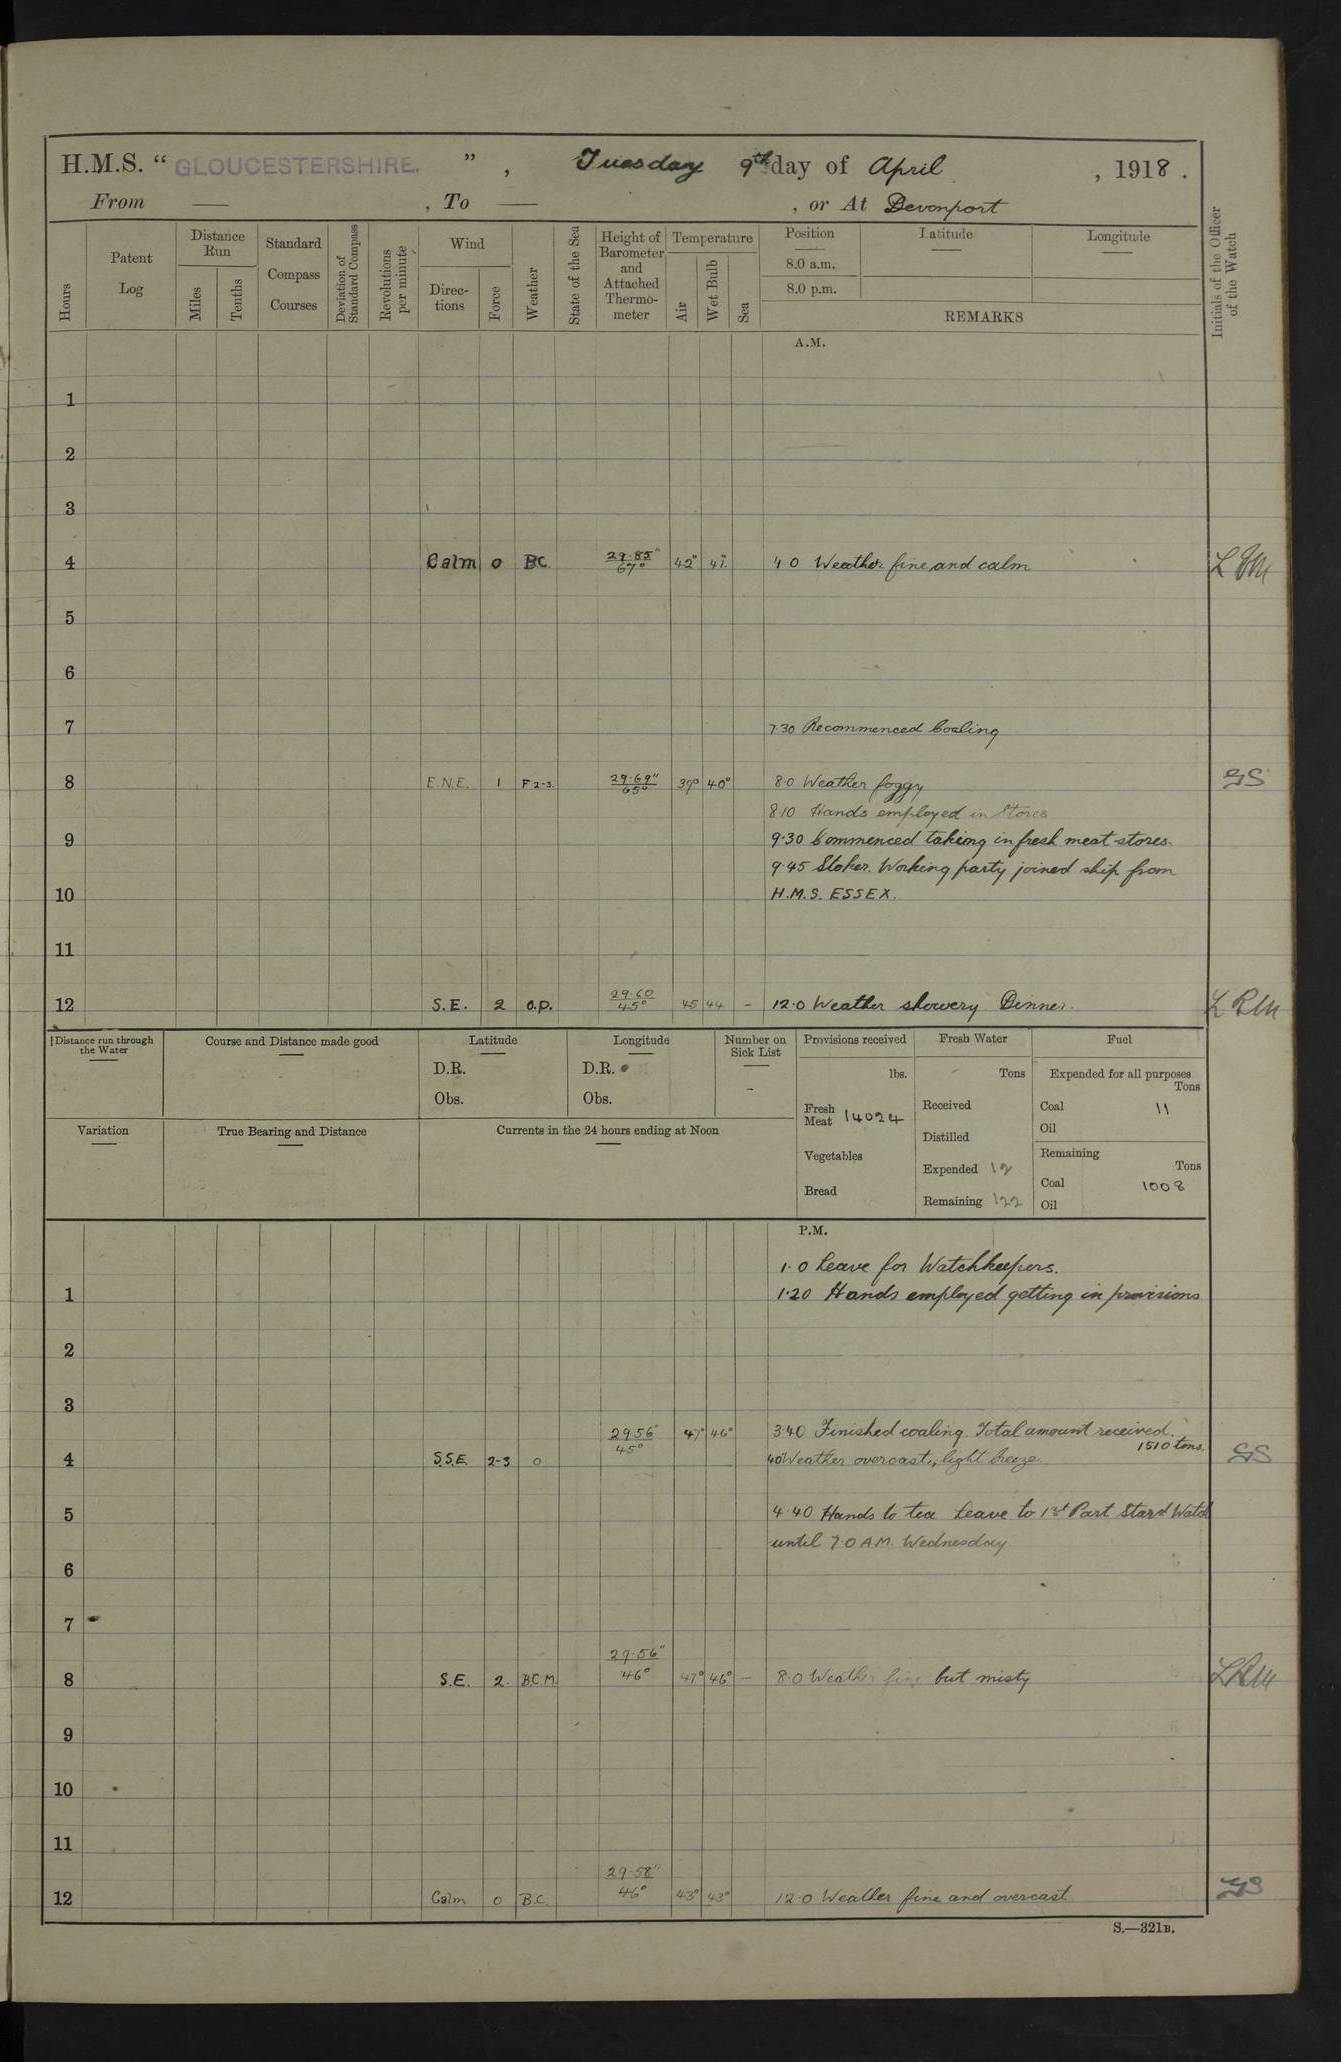 H.M.S. “ GLOUCESTERSHIRE. ” , Tuesday 9th day of April , 1918 .
From — , To — , or At Devonport
Hours
Patent Log
Distance Run
Miles
Tenths
Standard Compass Courses
Deviation of Standard Compass
Revolutions per minute
Wind
Directions
Force
Weather
State of the Sea
Height of Barometer and Attached Thermometer
Temperature
Air
Wet Bulb
Sea
Position
8.0 a.m.
8.0 p.m.
Latitude
Longitude
REMARKS
Initials of the Officer of the Watch
A.M.
1
2
3
4 Calm 0 BC. 29.85" 67° 42° 41° 4 0 Weather fine and calm
5
6
7 7.30 Recommenced Coaling
8 E.N.E. 1 F 2-3. 29.69" 65° 39° 40° 8.0 Weather foggy GS
8.10 Hands employed in Stores
9 9.30 Commenced taking in fresh meat stores.
9.45 Stoker. Working party joined ship from
10 H.M.S. ESSEX.
11
12 S.E. 2 O.P. 29.60 45° 45 44 – 12.0 Weather showery Dinner.
Distance run through the Water
Course and Distance made good
Latitude
D.R.
Obs.
Longitude
D.R.
Obs.
Number on Sick List
-
Provisions received
lbs.
Fresh Meat 14024
Vegetables
Bread
Fresh Water
Tons
Received
Distilled
Expended 12
Remaining 122
Fuel
Expended for all purposes
Tons
Coal 11
Oil
Remaining
Tons
Coal 1008
Oil
Variation
True Bearing and Distance
Currents in the 24 hours ending at Noon
P.M.
1.0 Leave for Watchkeepers.
1 1.20 Hands employed getting in provisions
2
3
29.56" 45° 47° 46° 3.40 Finished coaling. Total amount received.
1510 tons.
4 S.S.E. 2-3 0 4.0 Weather overcast, light breeze GS
5 4.40 Hands to tea Leave to 1st Part Stard Watch
until 7.0 A.M. Wednesday
6
7
8 S.E. 2. B.C.M. 29.56" 46° 47° 46° – 8.0 Weather fine but misty
9
10
11
12 Calm 0 B.C. 29.58" 46° 43° 43° 12.0 Weather fine and overcast GS
S.—321B.